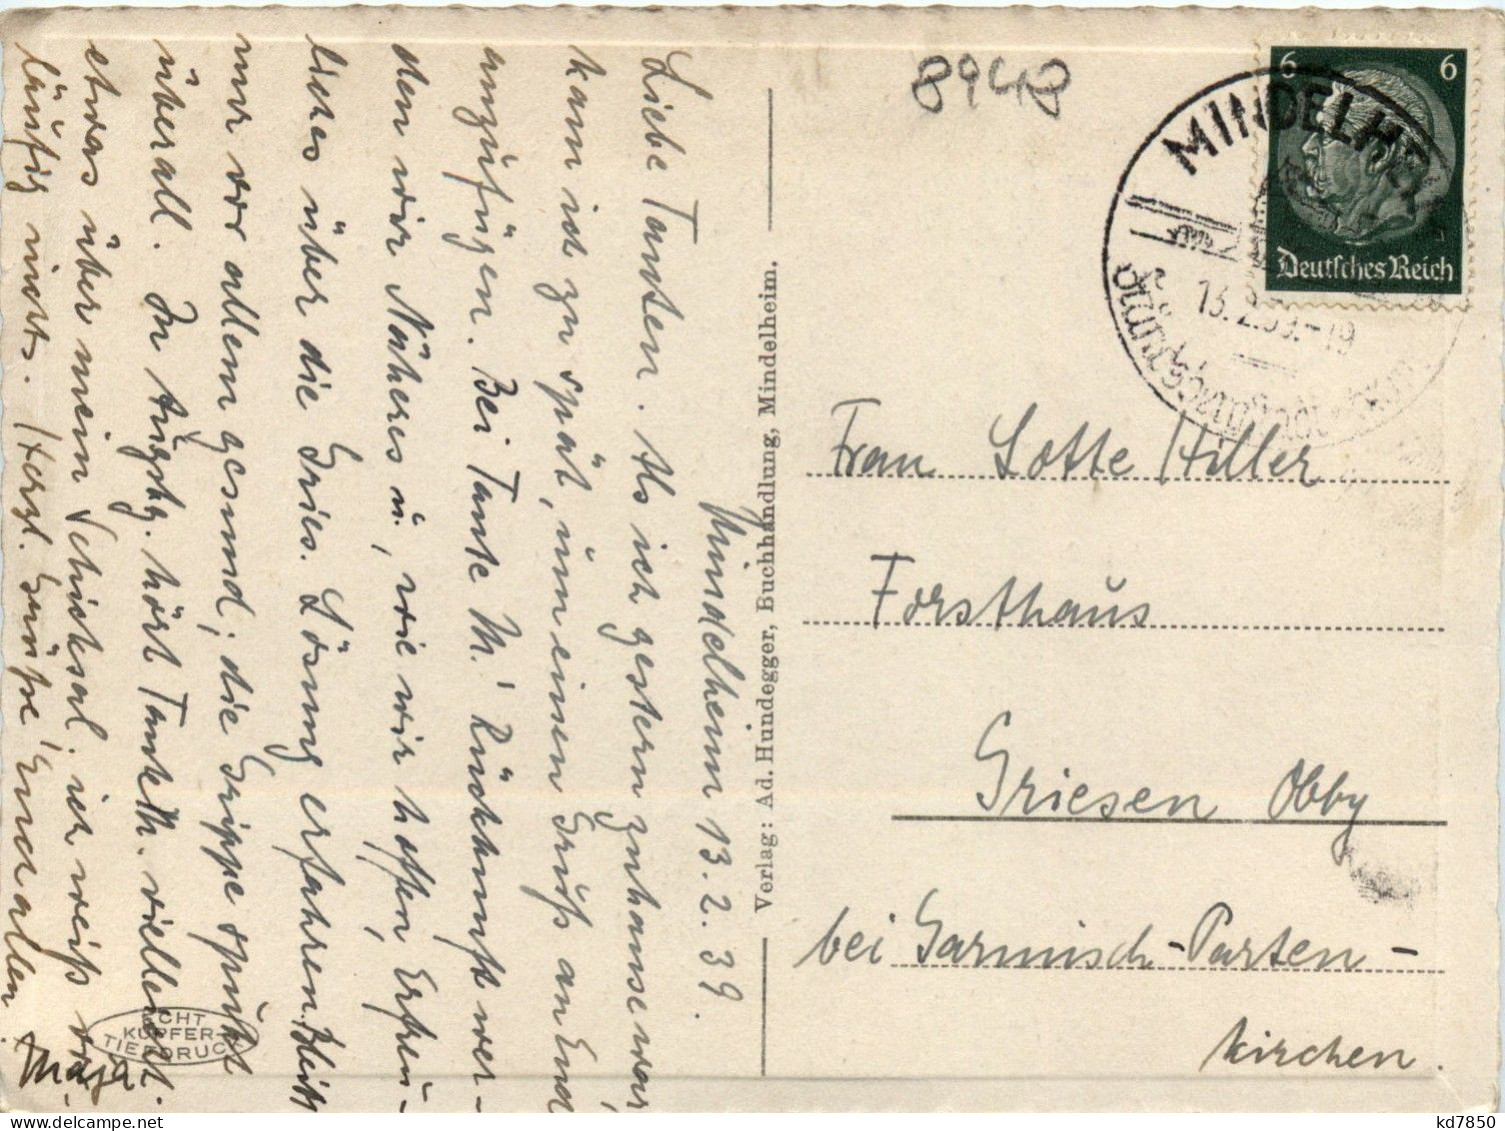 8948
6 6
Deutsches Reich
MINDELHEIM
13.2.39.-19
Verlag: Ad. Hundegger, Buchhandlung, Mindelheim.
Mindelheim 13. 2. 39.
Liebe Tanten. Als ich gestern zuhause war,
kam ich zu spät, um einen Gruß an Emd
anzufügen. Bei Tante M.' Rückkunft wer-
den wir Näheres u., wie wir hoffen, Erfreu-
liches über die Gries. Lösung erfahren. Bleibt
nur vor allem gesund; die Grippe spukt
überall. In Augsbg. hört Tante M. vielleicht
etwas über mein Schicksal; ich weiß vor-
läufig nichts. Herzl. Grüße Euch allen.
Maja
Frau Lotte Hiller
Forsthaus
Griesen Obby
bei Garmisch-Parten-
kirchen.
ECHT
KUPFER-
TIEFDRUCK
delcampe.net
kd7850